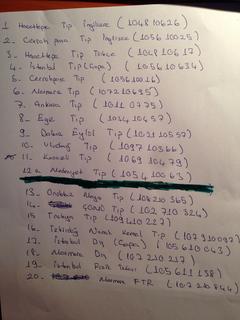 1 Hacettepe Tıp İngilizce (104810626)
2. Cerrah paşa Tıp İngilizce (105610025)
3- Hacettepe Tıp Türkçe (104810617)
4. İstanbul Tıp (Çapa) (105610634)
5. Cerrahpaşa Tıp (105610016)
6. Marmara Tıp (107210635)
7. Ankara Tıp (101110775)
8- Ege Tıp (103410457)
9- Dokuz Eylül Tıp (103110557)
10. Uludağ Tıp (109710366)
11. Kocaeli Tıp (106910479)
12. Medeniyet Tıp (105410063)
13- Ondokuz Mayıs Tıp (108210365)
14- ÇOMÜ Tıp (102710324)
15 Trakya Tıp (109410227)
16. Tekirdağ Namık Kemal Tıp (107310092)
17. İstanbul Diş (Çapa) (105610043)
18- Marmara Diş (107210217)
19- İstanbul (105611138)
20- Marmara FTR (107210844)